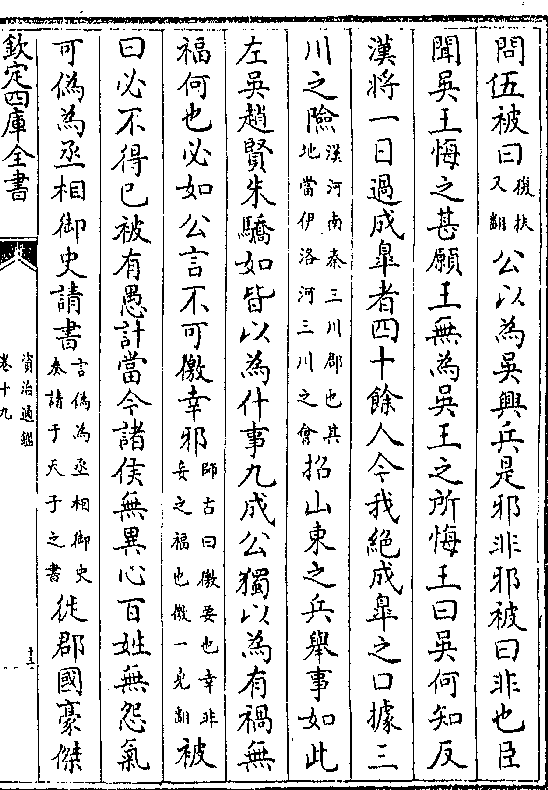 問伍被曰被扶又翻公以為吳興兵是邪非邪被曰非也臣
聞吳王悔之甚願王無為吳王之所悔王曰吳何知反
漢將一日過成臯者四十餘人今我絕成臯之口據三
川之險漢河南秦三川郡也其地當伊洛河三川之會招山東之兵舉事如此
左吳趙賢朱驕如皆以為什事九成公獨以為有禍無
福何也必如公言不可儌幸邪師古曰儌要也幸非妄之福也儌一免翻被
曰必不得已被有愚計當今諸侯無異心百姓無怨氣
可偽為丞相御史請書言偽為丞相御史奏請于天子之書徙郡國豪傑
欽定四庫全書
資治通鑑
卷十九